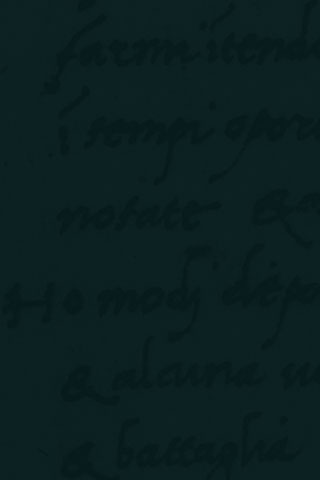 farmi itend
i tempi opor
notate &
Ho modj depo
& alcuna u
& battaglia